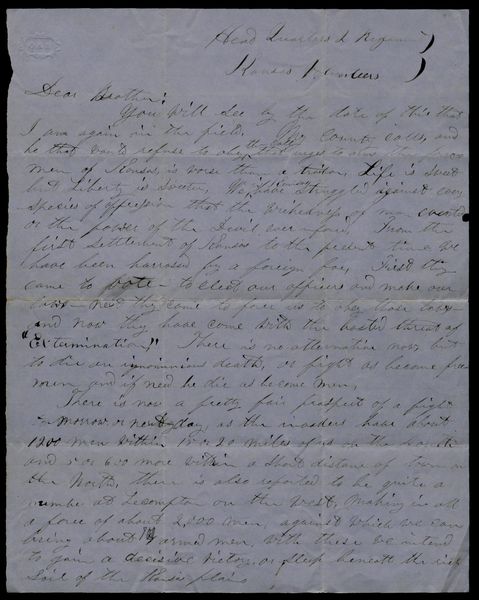 Head Quarters 2 Regiment
Kansas Volunteers
Dear Brother:
You will see by the date of this that
I am again in the field. My Country calls, and
he that would refuse to obey the call that urges to the
men of Kansas, is worse than a traitor. Life is sweet
but Liberty is sweeter. We have struggled against every
species of oppression that the wickedness of man
or the power of the Devil From the
first settlement of Kansas to the present time we
have been harrassed by a foreign foe, First they
came to vote to elect our officers and make our
laws next they come to force us to obey those laws
and now they have come with the boasted threat of
"Extermination," There is no alternative now but
to die an ignominious death, or fight as become free
men, and if need be die as become men,
There is now a pretty fair prospect of a fight
to-morrow or next day, as the invaders have about
1200 men within 15 or 20 miles of us on the
and 5 or 600 more within a short distance of town on
the North, there is also reported to be quite a
number at Lecompton on the West, making in all
a force of about 2,000 men, against which we can
bring about armed men, with these we intend
to gain a decisive victory or sleep beneath the rich
soil of the Kansas plains